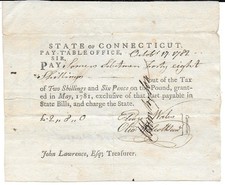 STATE OF CONNECTICUT.
PAY-TABLE OFFICE, Octobr 19 1782
SIR,
PAY forty eight
Shillings out of the Tax
of Two Shillings and Six Pence on the Pound, granted
in May, 1781, exclusive of that Part payable in
State Bills, and charge the State.
John Lawrence, Esq; Treasurer.